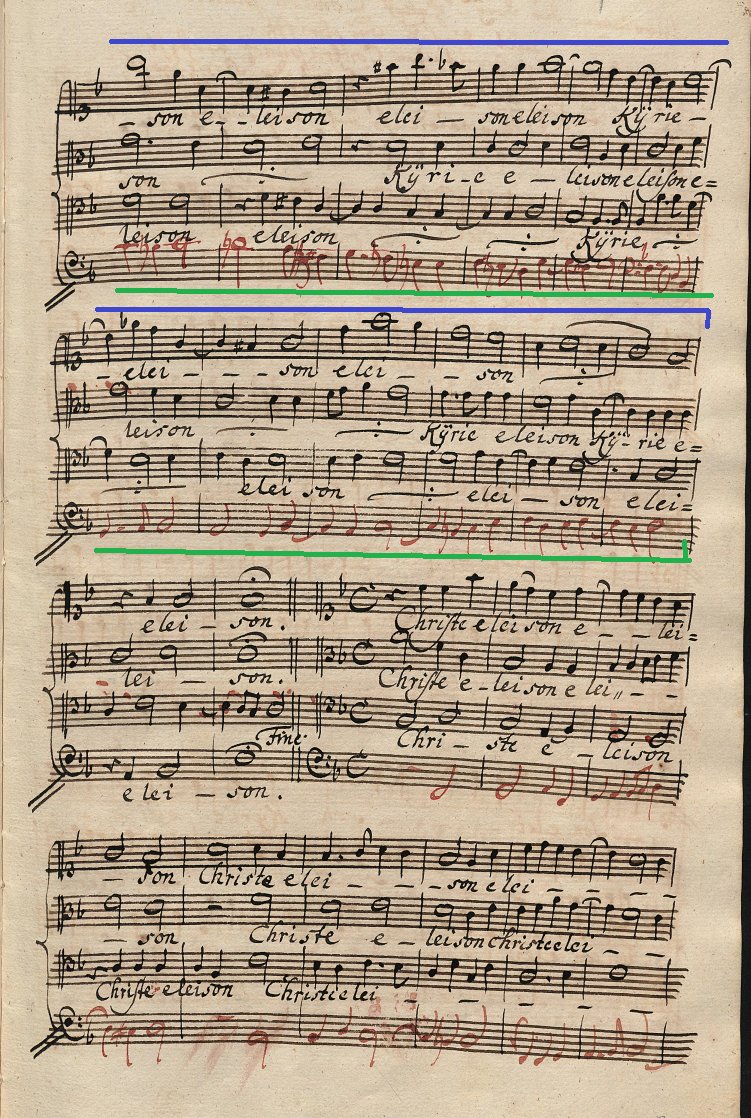 – son e – leison elei – son eleison Kÿrie –
son Kÿri – e e – leison eleison e=
leison eleison Kÿrie
– elei – – son elei – – son
leison Kÿrie eleison Kÿ – rie e=
elei son elei – son elei=
elei – son. Christe eleison e – – lei=
lei – son. Christe e – leison e lei – –
Fine. Chri – ste e – leison
elei – son.
– son Christe elei – – – son elei – – –
– son Christe e – leison Christe elei – –
Christe eleison Christe elei – – – –